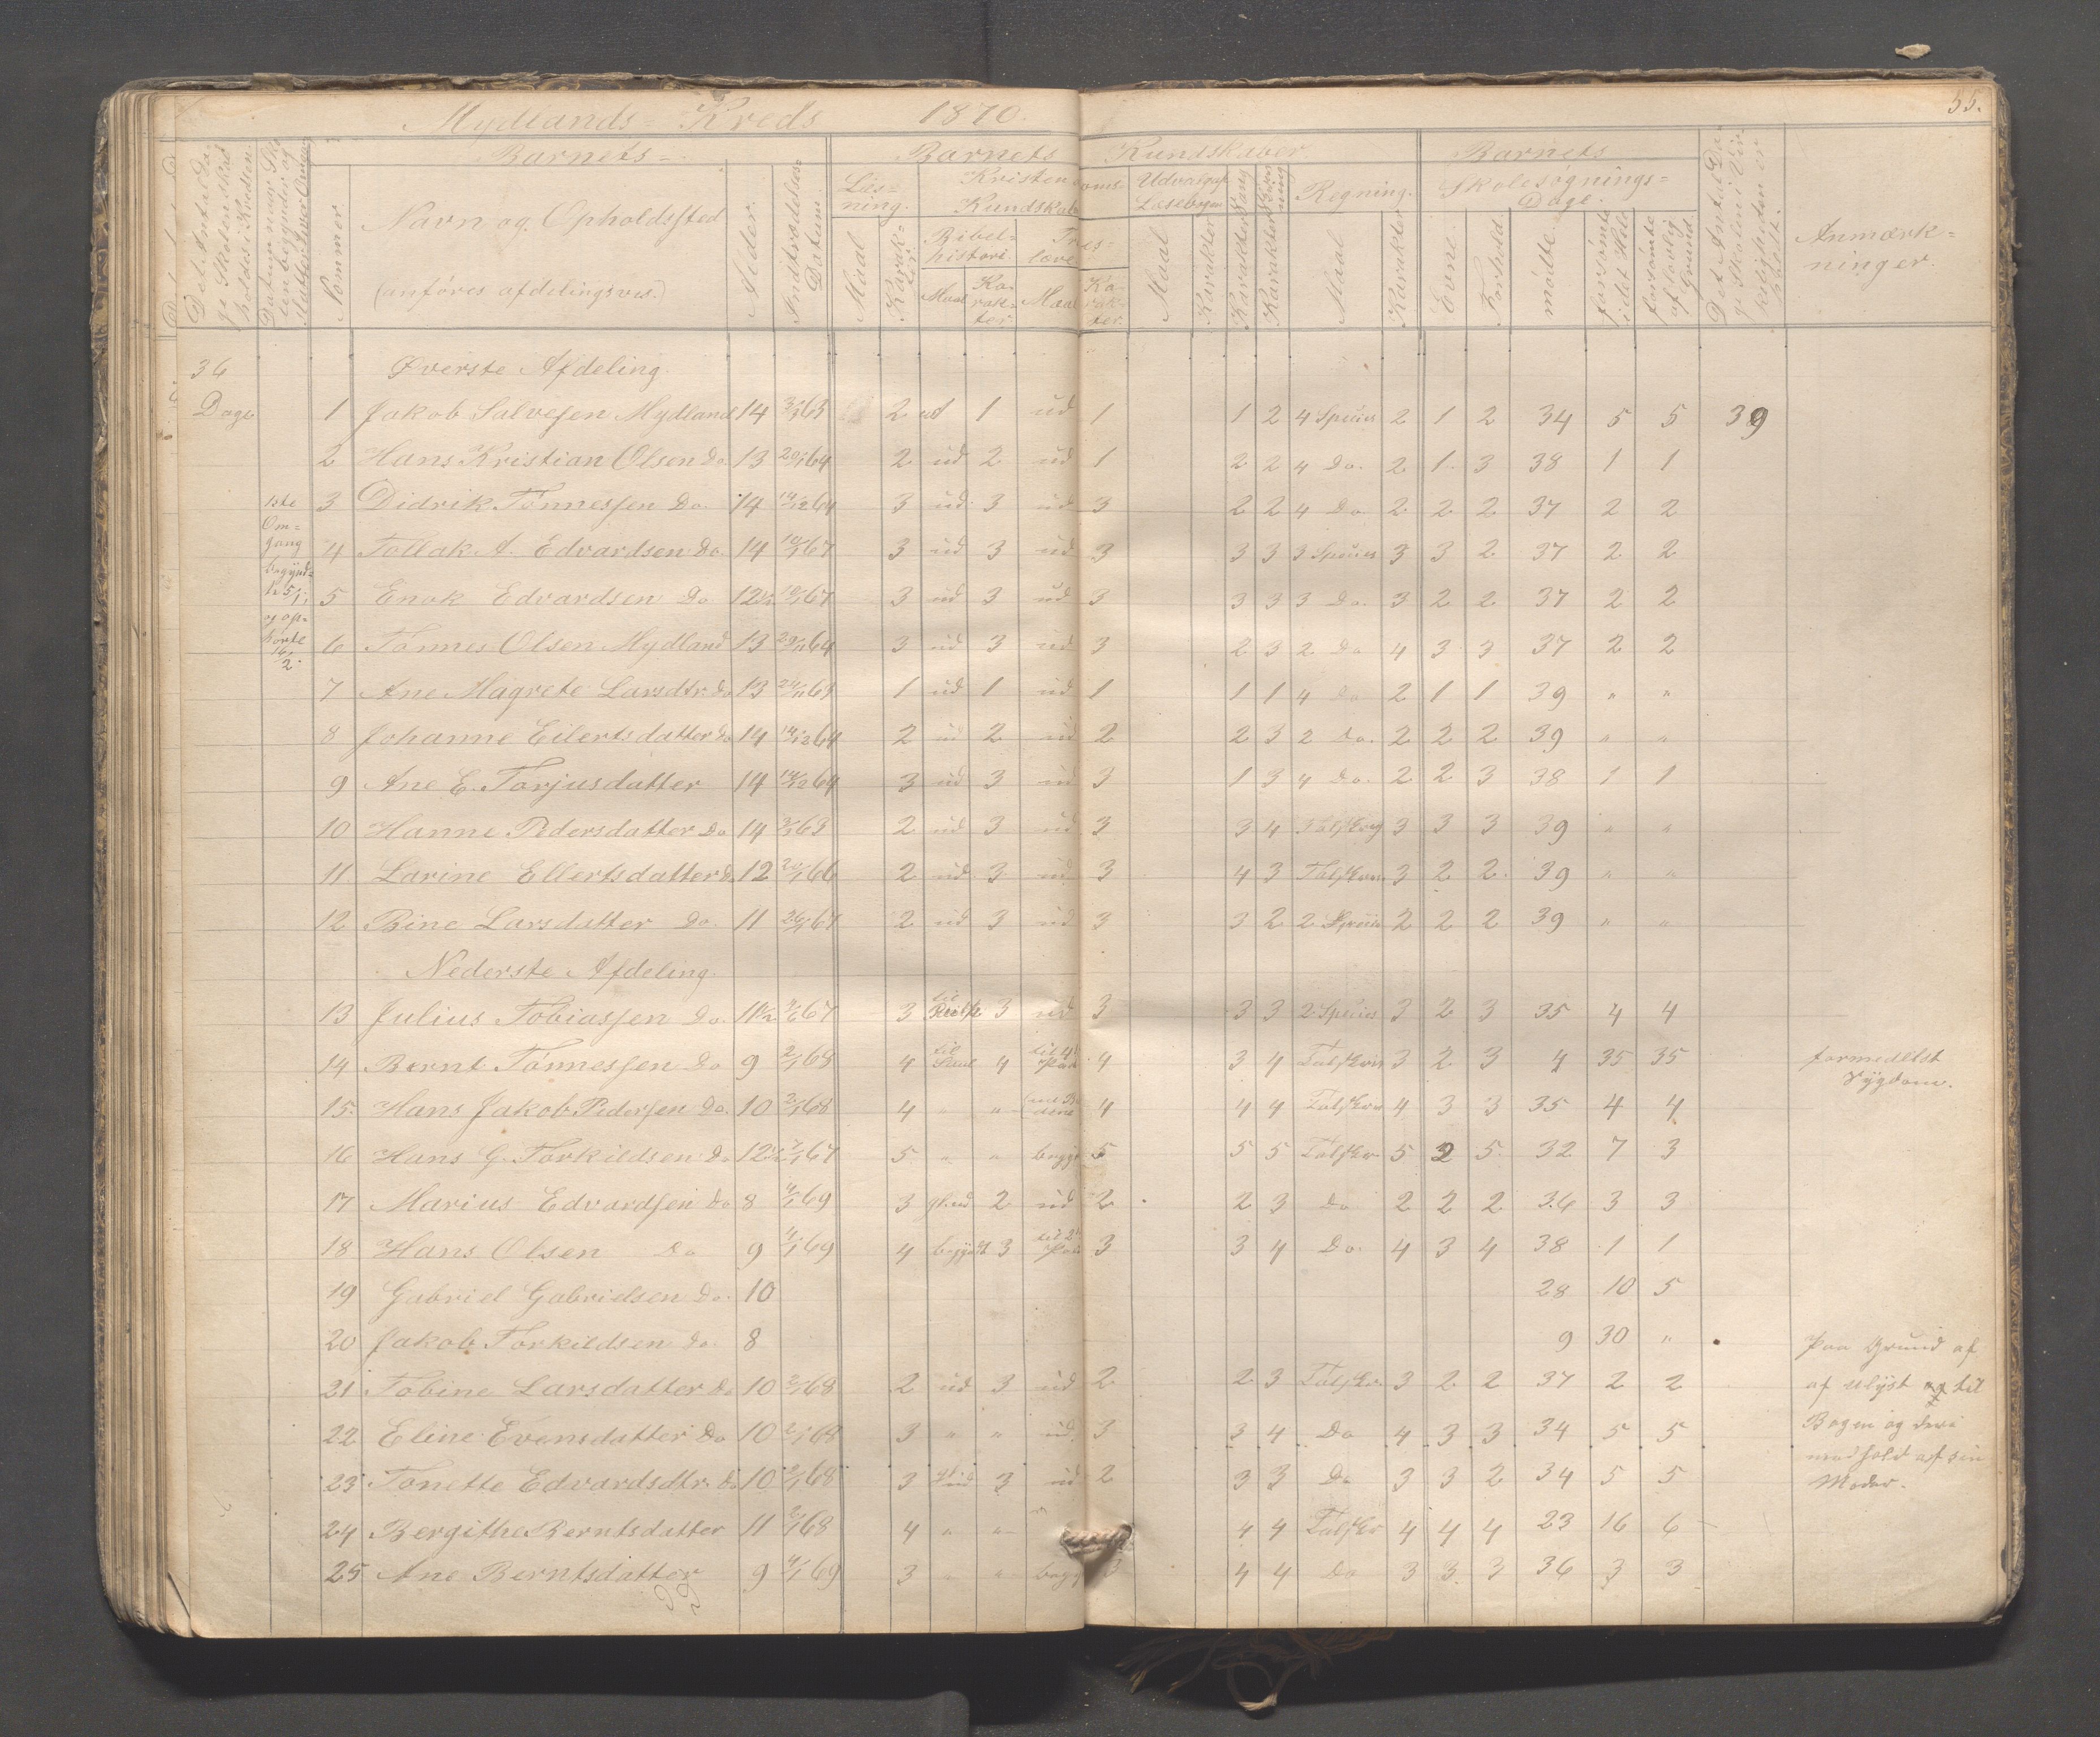 Mydlands = Kreds 1870.
55.
Det Antal Da-
ge Skolen skal
holdes i Kredsen.
Datum naar Sko-
len begynder og
slutter hver Omgang
Nommer.
Barnets =
Navn og Opholdssted
(anføres afdelingsvis.)
Alder.
Indtrædelses-
Datum.
Barnets Kundskaber.
Læs=
ning.
Maal
Karak-
ter
Kristendoms-
Kundskab
Bibel=
histori.
Maal
Ka-
rak-
ter
Tros=
lære
Maal
Ka-
rak-
ter.
Udvalgaf
Læsebogen
Maal
Karakter
Sang
Karakter
Skrivning
Karakter
Regning.
Maal
Karakter
Barnets
Skolesøgnings=
Dage.
Evne.
Forhold.
mødte.
forsømte
i det Hele
forsømte
af lovlig
Grund.
Det Antal Da-
ge Skolen i Vir-
keligheden er
holdt.
Anmærk=
ninger.
36
Dage
1ste
Om=
gang
begynd=
te 5/1
og op-
hørte
16/2.
Øverste Afdeling.
1 Jakob Salvesen Mydland 14 3/3 63 2 ud 1 ud 1 1 2 4 Speties 2 1 2 34 5 5 39
2 Hans Kristian Olsen Do 13 20/1 64 2 ud 2 ud 1 2 2 4 Do. 2 1 3 38 1 1
3 Didrik Tønnessen Do. 14 14/12 64 3 ud 3 ud 3 2 2 4 Do 2 2 2 37 2 2
4 Tollak A. Edvardsen Do. 14 10/1 67 3 ud 3 ud 3 3 3 3 Speties 3 3 2 37 2 2
5 Enok Edvardsen Do 12 1/2 10/1 67 3 ud 3 ud 3 3 3 3 Do. 3 2 2 37 2 2
6 Tønnes Olsen Mydland 13 29/11 64 3 ud 3 ud 3 2 3 2 Do 4 3 3 37 2 2
7 Ane Magrete Larsdtr. Do 13 24/11 63 1 ud 1 ud 1 1 1 4 Do 2 1 1 39 " "
8 Johanne Eilertsdatter Do 14 14/12 64 2 ud 2 ud 2 2 3 2 Do. 2 2 2 39 " "
9 Ane E. Torjusdatter 14 14/12 64 3 ud 3 ud 3 1 3 4 Do. 2 2 3 38 1 1
10 Hanne Pedersdatter Do 14 3/3 63 2 ud 3 ud 3 3 4 3 3 3 39 " "
11 Larine Ellertsdatter Do 12 20/1 66 2 ud 3 ud 3 4 3 3 2 2 39 " "
12 Bine Larsdatter Do. 11 26/1 67 2 ud 3 ud 3 3 2 2 Speties 2 2 2 39 " "
Nederste Afdeling.
13 Julius Tobiassen Do. 11 1/2 67 3 til 3 ud 3 3 3 2 Speties 3 2 3 35 4 4
14 Bernt Tønnessen Do 9 2/1 68 4 til Saul 4 til 4de Part 4 3 4 3 2 3 4 35 35 formedelst
Sygdom.
15. Hans Jakob Pedersen Do. 10 2/1 68 4 " " 4 4 4 4 3 3 35 4 4
16 Hans G. Torkildsen Do 12 1/2 67 5 " " begy 5 5 5 5 2 5 32 7 3
17 Marius Edvardsen Do 8 4/1 69 3 gl. ud 2 ud 2 2 3 Do 2 2 2 36 3 3
18 Hans Olsen Do 9 4/1 69 4 begyndt 3 til 2d Part 3 3 4 Do. 4 3 4 38 1 1
19 Gabriel Gabrielsen Do. 10 28 10 5
20 Jakob Torkildsen Do. 8 9 30 " Paa Grund af
21 Tobine Larsdatter Do 10 2/1 68 2 ud 3 ud 2 2 3 3 2 2 37 2 2 af ulyst og til
22 Eline Evensdatter Do 10 2/1 68 3 " " ud. 3 3 4 Do 4 3 3 34 5 5 Bogen og deri
medhold af sin
23 Tonette Edvardsdtr. Do 10 2/1 68 3 gl. ud 3 ud 2 3 3 Do 3 3 2 34 5 5 Moder.
24 Bergithe Berntsdatter 11 2/1 68 4 " " 4 4 4 4 4 23 16 6
25 Ane Berntsdatter 9 4/1 69 3 " " begy 3 4 4 Do 3 3 3 36 3 3